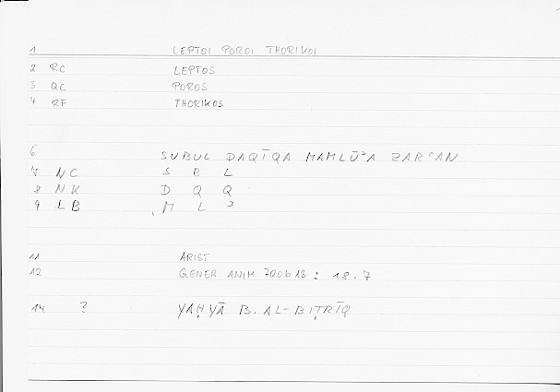 1 LEPTOI POROI THORIKOI
2 RC LEPTOS
3 QC POROS
4 RF THORIKOS
6 SUBUL DAQĪQA MAMLŪʾA ZARʿAN
7 NC S B L
8 NK D Q Q
9 LB M L ʾ
11 ARIST
12 GENER ANIM 720b13 : 18.7
14 ? YAḤYĀ B. AL-BIṬRĪQ